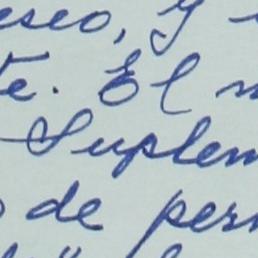 eseo, y
te. El m
Suplem
de per